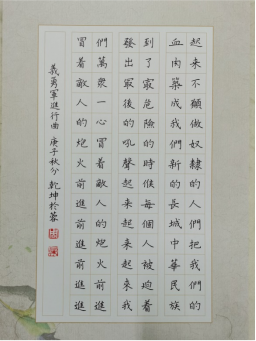 起來不願做奴隸的人們把我們的
血肉築成我們新的長城中華民族
到了最危險的時候每個人被迫着
發出最後的吼聲起來起來起來我
們萬眾一心冒着敵人的炮火前進
冒着敵人的炮火前進前進前進進
義勇軍進行曲 庚子秋分 乾坤於蓉